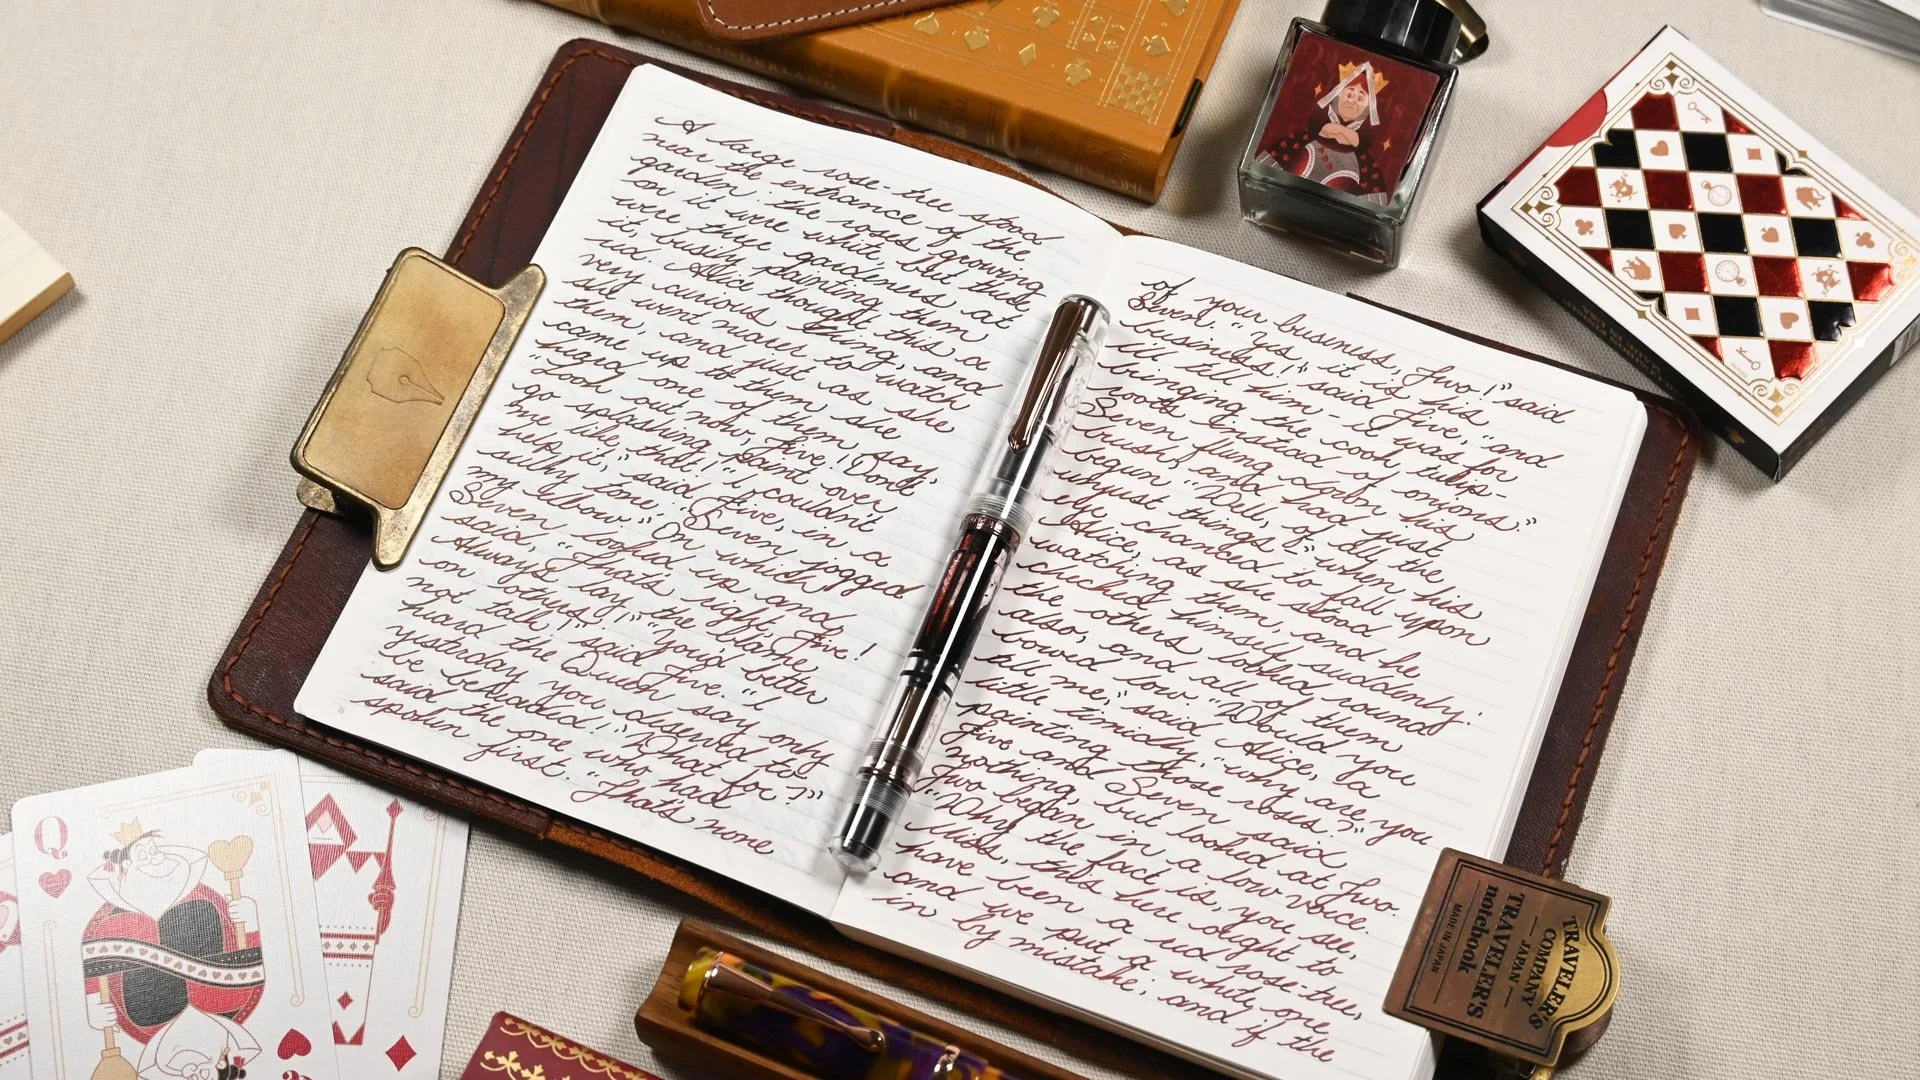 A large rose-tree stood
near the entrance of the
garden: the roses growing
on it were white, but there
were three gardeners at
it, busily painting them
red. Alice thought this a
very curious thing, and
she went nearer to watch
them, and just as she
came up to them she
heard one of them say,
"Look out now, Five! Don't
go splashing paint over
me like that!" "I couldn't
help it," said Five, in a
sulky tone. "Seven jogged
my elbow." On which
Seven looked up and
said, "That's right, Five!
Always lay the blame
on others!" "You'd better
not talk!" said Five. "I
heard the Queen say only
yesterday you deserved to
be beheaded!" "What for?"
said the one who had
spoken first. "That's none
of your business, Two!" said
Seven. "Yes, it is his
business!" said Five, "and
I'll tell him - it was for
bringing the cook tulip-
roots instead of onions."
Seven flung down his
brush, and had just
begun "Well, of all the
unjust things -" when his
eye chanced to fall upon
Alice, as she stood
watching them, and he
checked himself suddenly:
the others looked round
also, and all of them
bowed low. "Would you
tell me," said Alice, a
little timidly, "why are you
painting those roses?"
Five and Seven said
nothing, but looked at Two.
Two began in a low voice.
"Why the fact is, you see,
Miss, this here ought to
have been a red rose-tree,
and we put a white one
in by mistake; and if the
Q
TRAVELER'S
COMPANY
JAPAN
TRAVELER'S
notebook
MADE IN JAPAN